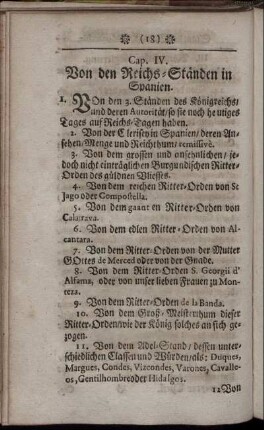 (18)
Cap. IV.
Von den Reichs-Ständen in
Spanien.
1. VOn den 3. Ständen des Königreichs/
und deren Autorität/ so sie noch heutiges
Tages auf Reichs-Tagen haben.
2. Von der Clerisey in Spanien/ deren An-
sehen/ Menge und Reichthum/ remissivè.
3. Von dem grossen und ansehnlichen/ je-
doch nicht einträglichen Burgundischen Ritter-
Orden des güldnen Vliesses.
4. Von dem reichen Ritter-Orden von St
Jago oder Compostella.
5. Von dem gaant en Ritter-Orden von
Calatrava.
6. Von dem edlen Ritter-Orden von Al-
cantara.
7. Von dem Ritter-Orden von der Mutter
GOttes de Merced oder von der Gnade.
8. Von dem Ritter-Orden S. Georgii d'
Alfama, oder von unser lieben Frauen zu Mon-
teza.
9. Von dem Ritter-Orden de la Banda.
10. Von dem Groß-Meisterthum dieser
Ritter-Orden/ wie der König solches an sich ge-
zogen.
11. Von dem Adel-Stand/ dessen unter-
schiedlichen Classen und Würden/ als: Duques,
Margues, Condes, Vizcondes, Varones, Cavalle-
ros, Gentilhombre oder Hidalgos.
12 Von